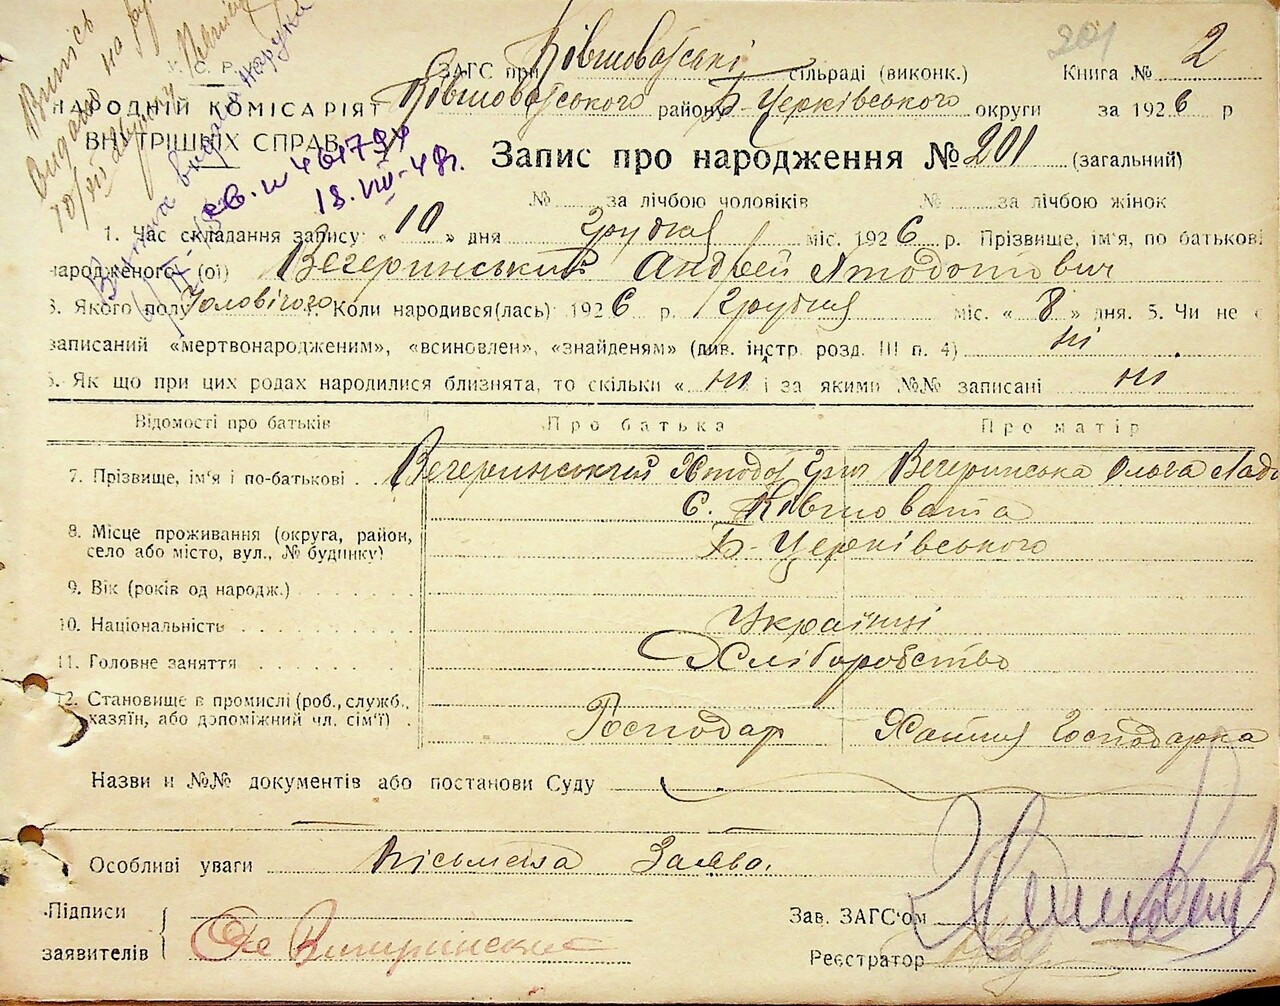 Випись
Видано на руки
У. С. Р. Р.
НАРОДНІЙ КОМІСАРІЯТ
ВНУТРІШНІХ СПРАВ
св. № 461794
18.VIII-48г.
201
ЗАГС при Ківшоватські сільраді (виконк.) Книга № 2
Ківшоватського району Б-Черківського округи за 1926 р
Запис про народження № 201 (загальний)
№ за лічбою чоловіків № за лічбою жінок
1. Час складання запису: « 10 » дня Грудня міс. 1926 р. Прізвище, ім'я, по батькові
народженого (ої) Вечеринський Андрей
3. Якого полу Чоловічого Коли народився(лась) 1926 р. Грудня міс. « 8 » дня. 5. Чи не є
записаний «мертвонародженим», «всиновлен», «знайденям» (див. інстр. розд. III п. 4) ні
6. Як що при цих родах народилися близнята, то скільки « ні і за якими №№ записані ні
Відомості про батьків Про батька Про матір
7. Прізвище, ім'я і по-батькові Вечеринський Вечеринська Ольга
С. Ківшовата
8. Місце проживання (округа, район, село або місто, вул., № будинку) Б-Черківського
9. Вік (років од народж.)
10. Національність Українці
11. Головне заняття Хліборобство
12. Становище в промислі (роб., служб., хазяїн, або допоміжний чл. сім'ї) Господар Хатня Господарка
Назви и №№ документів або постанови Суду
Особливі уваги Пісьмена Заява.
Підписи
заявителів
Зав. ЗАГС'ом
Реєстратор